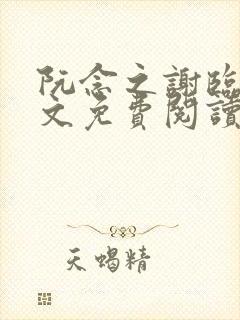 阮念之謝臨
文免費閱讀
天蝎精